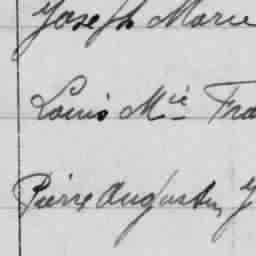 Joseph Marie
Louis Mie Fra
Pierre Augustin J